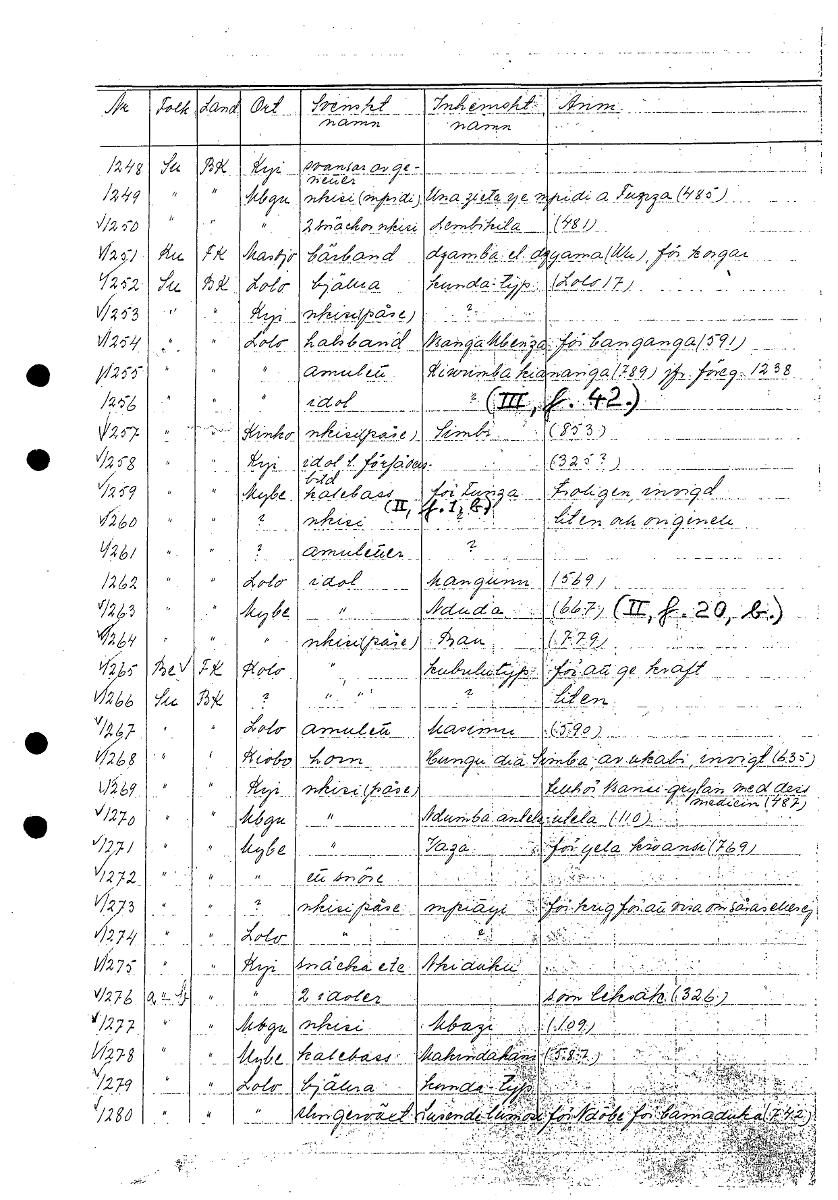 Nr Folk Land Ort Svenskt namn Inhemskt namn Anm
1248 Su BK Kyi svansar av genetter
1249 " " Mbgu nkisi (mpidi) Una zieta ye mpidi a Funza (485)
V1250 " " " 2 snäckor nkisi Lembikila (481)
V1251 Ku FK Masojo bärband (Uu), för korgar
V1252 Su BK Lolo bjällra kunda-typ (Lolo 17)
V1253 " " Kyi nkisi (påse) ?
V1254 " " Lolo halsband Manga Mbenza för banganga (591)
V1255 " " " amulett (789) jfr föreg. 1238
1256 " " " idol ? (III, f. 42.)
V1257 " " Kinko nkisi (påse) Simbi (853)
V1258 " " Kyi idol l. förfäders-bild (325?)
V1259 " " Mybe kalebass för Funza troligen invigd
(II, f. 1, b)
V1260 " " ? nkisi ? liten och originell
V1261 " " ? amuletter ?
1262 " " Lolo idol Mangunu (569)
V1263 " " Mybe " Nduda (667) (II, f. 20, b.)
V1264 " " " nkisi (påse) Bau (779)
V1265 Be V FK Kolo " kubulutyp för att ge kraft
V1266 Su BK ? " " ? liten
V1267 " " Lolo amulett Masimu (590)
V1268 " " Kiobo horn Bungu dia Simba, av nkabi, invigt (635)
V1269 " " Kyi nkisi (påse) tillhör Bansi-grytan med dess medicin (487)
V1270 " " Mbgu " Ndumba ulela (110)
V1271 " " Mybe " Jaza för yela kwansi (769)
V1272 " " " ett snöre
V1273 " " ? nkisi påse mpiayi för krig för att visa om såras eller ej
V1274 " " Lolo " ?
V1275 " " Kyi snäcka etc Nkiduku
V1276 " " 2 idoler som leksak (326)
V1277 " " Mbgu nkisi Mbazi (109)
V1278 " " Mybe kalebass (587)
V1279 " " Lolo bjällra kunda-typ
V1280 " " " för Ndöbe för bamaduka (742)